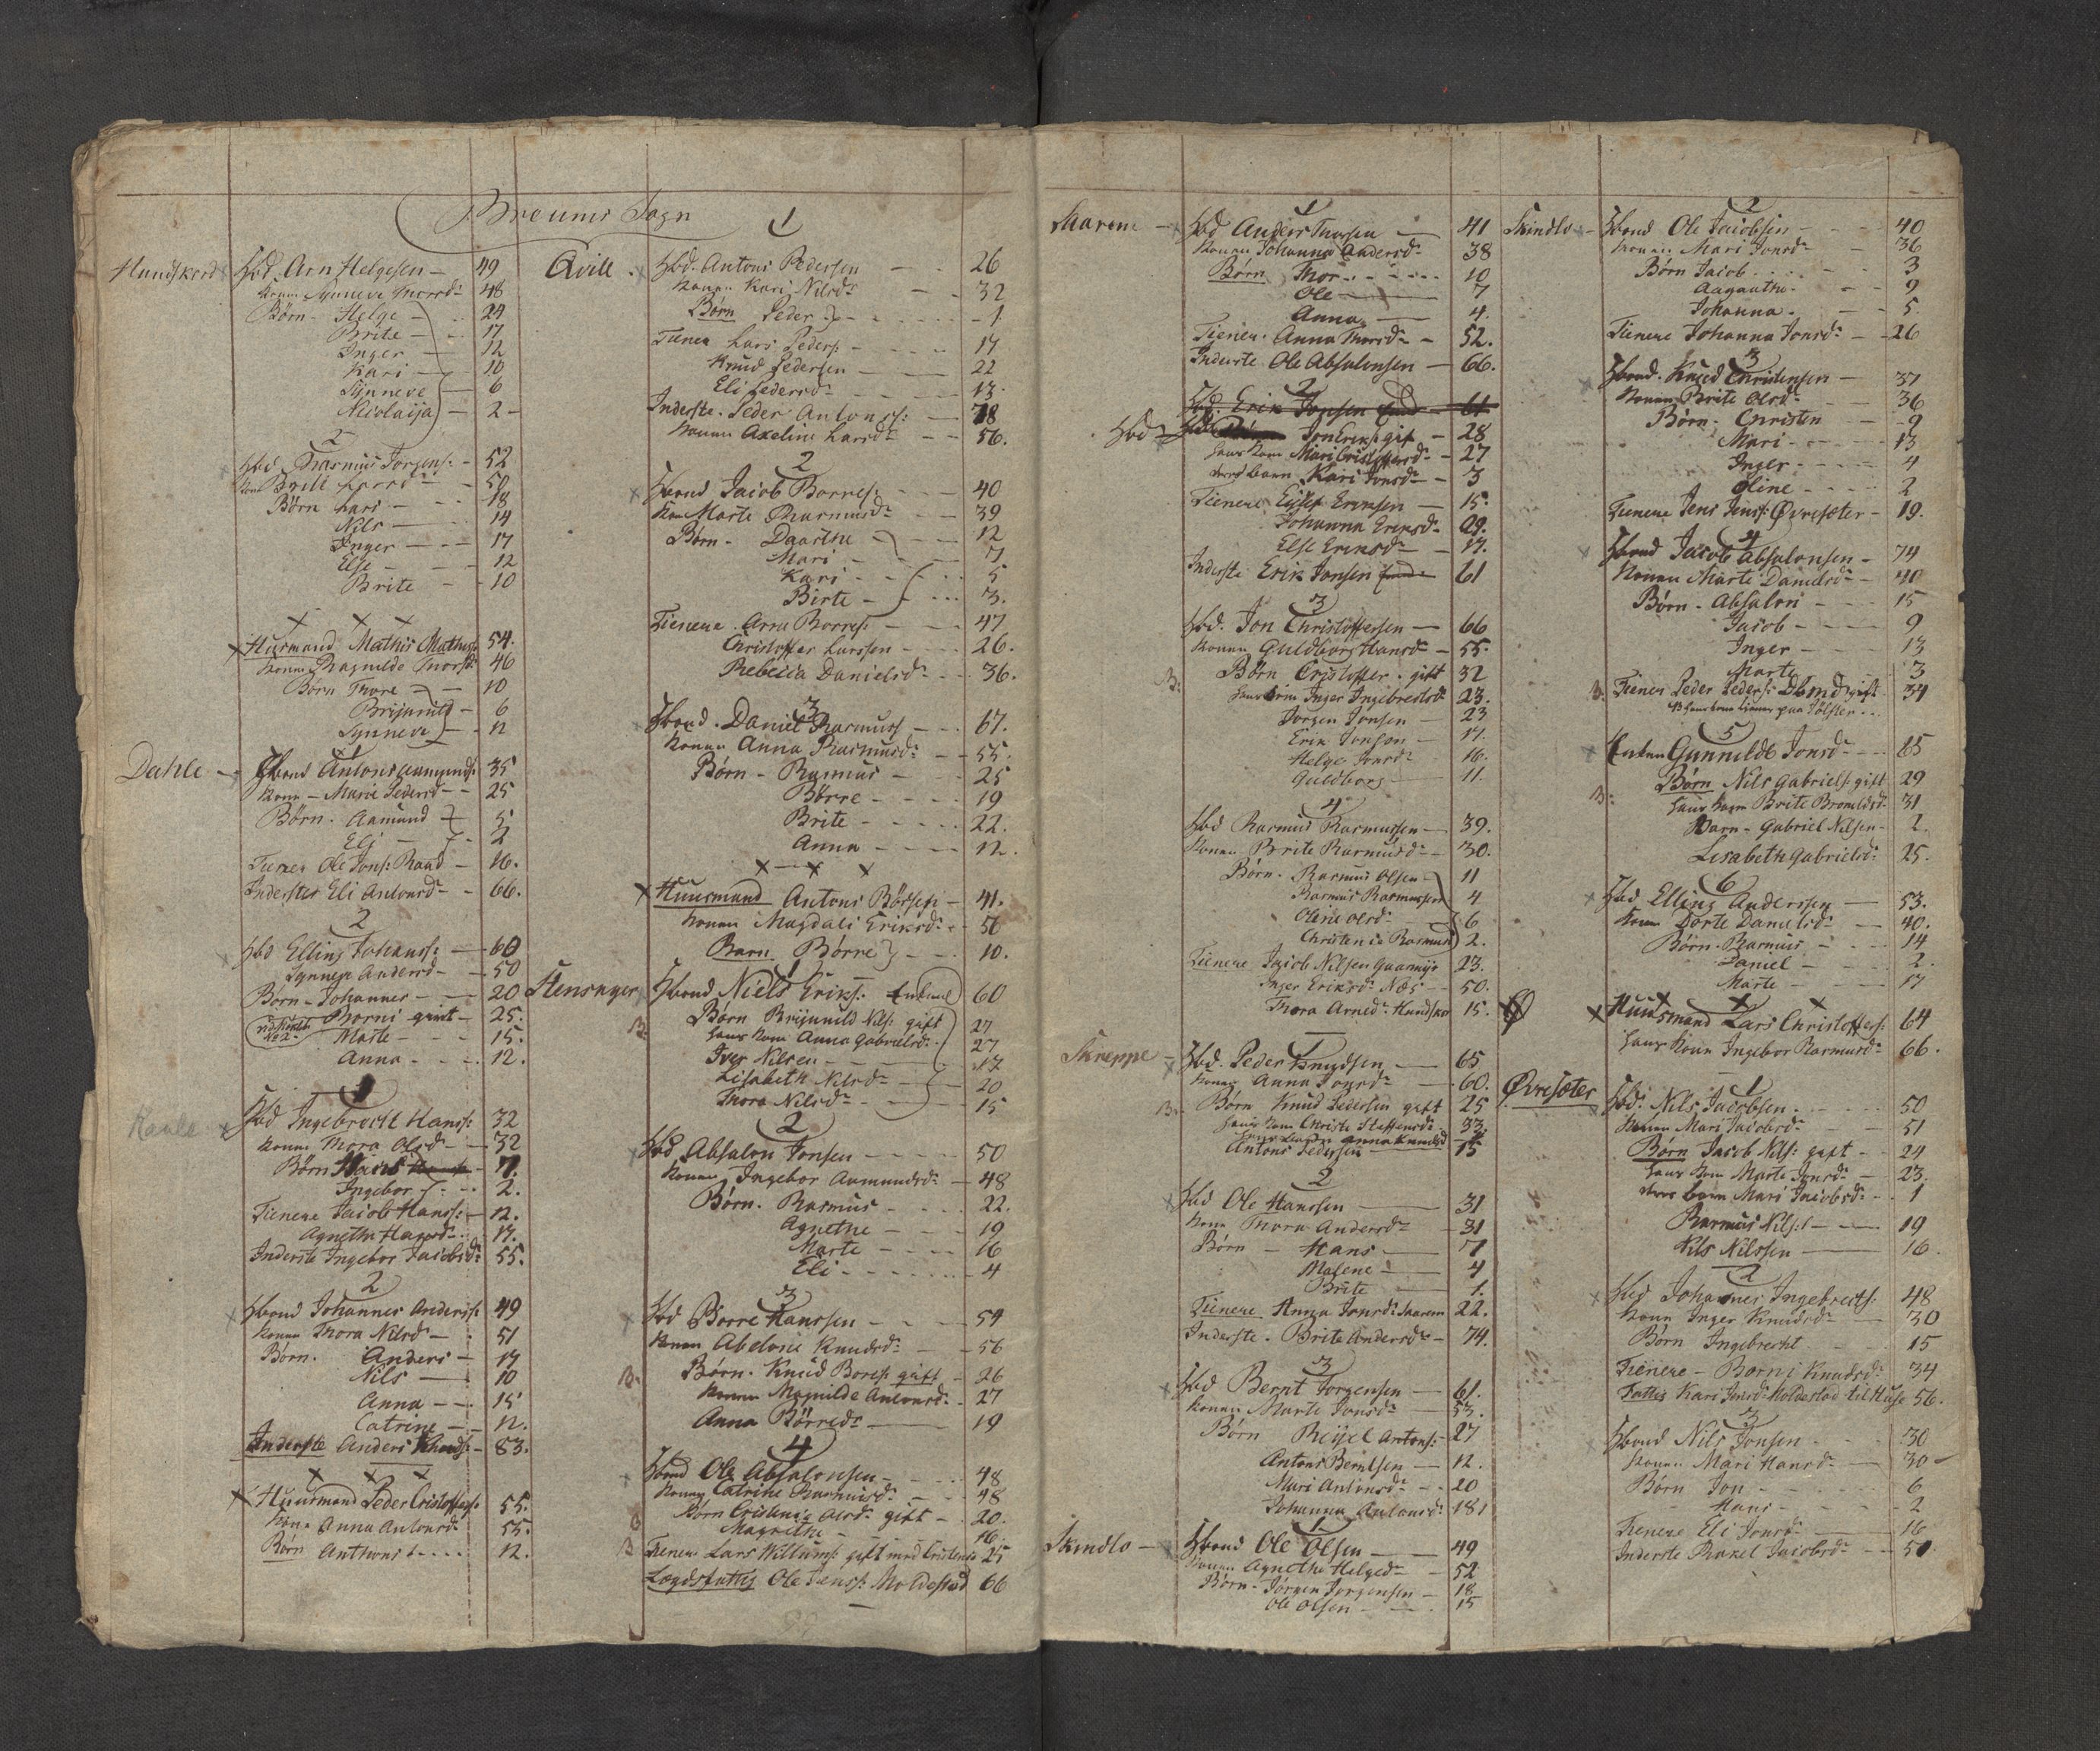 Breums Sogn
Hundskord Hbd. Arn Helgesen - 49
Konen Synneve Thorsd: 48
Børn - Helge - 24
Brite - 17
Inger - 12
Kari - 10
Synneve - 6
Nicolaija - 2
2
Hbd Rasmus Jorgens: - 52
Kon Brite Larsd - 50
Børn Lars - 18
Nils - 14
Inger - 17
Else - 12
Brite - 10
x x x
x Husmand Mathis Mathis: 54.
Konen Ragnilde Thorsd: 46
Børn Thore - 10
Brijnnild - 6
Synneve - 11
1
Dahle - Hbond Antons Aamunds: 35
Kone - Marie Pedersd - 25
Børn. Aamund - 5
Eli - 2
Tiener Ole Jons: Raad - 16.
Inderster Eli Antonsd - 66.
2
Hbd Elling Johans: - 60
Synneve Andersd - 50
Børn - Johannes - 20
Borni givt - 25.
Marte - 15.
Anna - 12.
1
Hbd Ingebrecht Hans: 32
Konen Thora Olsd - 32
Børn Hans - 7.
Ingebor - 2.
Tienere Jacob Hans: - 12.
Agnethe Hansd - 17.
Inderste Ingebor Jacobsd: 55.
2
Hbond Johannes Anders: 49
Konen Thora Nilsd - 51
Børn. Anders - 17
Nils - 10
Anna - 15
Catrine - 12.
Inderste Anders Knuds: - 83.
x x x
x Huusmand Peder Cristoffers: 55.
Kone Anna Antonsd 55.
Børn Anthoni - 12.
1
Avill. Hbd. Antons Pedersen - 26
Konen Kari Nilsd: - 32
Børn Peder - 1
Tiener Lars Peders: - 17
Knud Pedersen - 22
Eli Pedersd - 13.
Inderste. Peder Antons: - 78
Konen Axeline Larsd: - 56.
2
Hbond Jacob Borres: - 40
Kon Marte Rasmusd: - 39
Børn - Daarthe - 12
Mari - 7
Kari - 5
Birte - 3.
Tienere. Arne Borres: - 47
Christoffer Larssen - 26.
Rebecca Danielsd: - 36.
3
Hbond. Daniel Rasmuss - 67.
Konen Anna Rasmusd: - 55.
Børn - Rasmus - 25
Børre - 19
Brite - 22.
Anna - 12.
x - x x
x Huusmand Antons Børsen - 41.
Konen Magdali Eriksd: - 50
Barn Børre - 10.
1
Stensager Hbond Niels Eriks: Enkemd 60
B: Børn Brijnnild Nils: gift 27
hans Kone Anna Gabrielsd: 27
Iver Nilsen - 17
Lisabeth Nilsd: - 20
Thora Nilsd: - 15
2
Hbd Absalon Jonsen - 50
Konen Ingebor Aamundsd: - 48
Børn. Rasmus - 22.
Agnethe - 19
Marte - 16
Eli - 4
3
Hbd Borre Hanssen - 54
Konen Abelone Knudsd: - 56
B: Børn. Knud Bores: gift - 26
Konen Magnilde Antonsd: - 27
Anna Börresd: - 19
4
Hbond Ole Absalonsen - 48
Konen Catrine Rasmusd: - 48
Børn Cristense Olsd: gift - 20.
Magrethe - 16.
B Tienere Lars Willums: gift med Cristense 25
Lægdsfattig Ole Jens: Moldestad 66
1
Maarene - Hbd Anders Thorsen - 41
Konen Johanna Andersd: 38
Børn Thor - 10
Ole - 7
Anna - 4.
Tiener. Anna Thorsd: - 52.
Inderste Ole Absalonsen - 66.
2
Hbd. Erik Jonsen - 61
Hbd Jon Eriks: gift - 28
hans Kone Mari Cristoffersd: - 27
deres barn Kari Jonsd: - 3
Tienere Erikssen - 15.
Johanna Eriksd: - 29.
Else Eriksd: - 17.
Inderste Erik Jonsen 61
3
Hbd. Jon Christoffersen - 66
Konen Guldborg Hansd: - 55.
B: Børn Cristoffer. gift 32
hans Kone Inger Ingebrectsd: 23.
Jorgen Jonsen - 23
Erik Jonson - 17.
Helge Jonsd: 16.
Guldborg - 11.
4
Hbd Rasmus Rasmussen - 39.
Konen Brite Rasmusd: - 30.
Børn. Rasmus Olsen - 11
Rasmus Rasmussen 4
Oline Olsd: - 6
Christense Rasmusd 2.
Tienere Jacob Nilsen 23.
Inger Eriksd: Næs - 50.
Thora Arnesd: Hundskor 15.
1
Skreppe - Hbd. Peder Knudsen - 65
Konen Anna Jonsd: - 60.
B: Børn Knud Pedersen gift 25
hans Kone Christi Steffensd: 33.
Anna Knudsd
Antons Pedersen - 15
2
Hbd Ole Hanssen - 31
Kone Thora Andersd: - 31
Børn - Hans - 7
Malene - 4
Brite - 1.
Tienere Anna Jonsd: 22.
Inderste - Brite Andersd: - 74.
3
Hbd Bernt Jorgensen - 61.
Konen Marte Jonsd: - 53.
Børn Reijel Antons: - 27
Antons Berntsen - 12.
Mari Antonsd: - 20
Johanna Antonsd: 18
1
Skindlo - Hbond Ole Olsen - 49
Konen Agnethe Helged: - 52
Børn - Jörgen Jorgensen - 18
Ole Olsen - 15
2
Skindlo - Hbond Ole Jacobsen - 40
Konen Mari Jonsd: - 36
Børn Jacob - 3
Aagaathe - 9
Johanna - 5
Tienere Johanna Jonsd: - 26
3
Hbond. Knud Christensen - 37
Konen Brite Olsd: - 36
Børn - Christen - 9
Mari - 13
Inger - 4
Oline - 2
Tienere Jens Jens: Øvresæter - 19.
4
Hbond Jacob Absalonsen - 74
Konen Marte Danielsd: - 40
Børn - Absalon - 15
Jacob - 9
Inger - 13
Marte - 3
B. Tiener Peder Peders: gift 34
NB hans kone tiener paa Jølster
5
Enken Gunnilde Jonsd: - 65
Børn Nils Gabriels: gift 29
B: hans Kone Brite 31
Barn - Gabriel Nilsen - 2.
Lisabeth Gabrielsd: 25.
6
Hbd Elling Anderssen - 53.
Konen Dorte Danielsd: - 40.
Børn. Rasmus - 14
Daniel - 2.
Marte - 17
x x x
x Huusmand Lars Christoffers: 64
hans Kone Ingebor Rasmusd: 66.
1
Øvresæter Hbd: Nils Jacobsen. - 50
Konen Mari Jacobsd: - 51
Børn Jacob Nils: gift - 24
hans Kone Marte Jonsd: - 23.
deres barn Mari Jacobsd: - 1
Rasmus Nils: - 19
Nils Nilssen - 16.
2
Hbd Johannes Ingebrects: 48
Kone Inger Knudsd: - 30
Børn Ingebrecht - 15
Tienere - Borni Knudsd: 34
Fattig Kari Jonsd: Moldestad til Huse 56.
3
Hbond Nils Jonsen - 30
Konen Mari Hansd: - 30
Børn Jon - 6
Hans - 2
Tienere Eli Jonsd: - 16
Inderste Rakel Jacobsd: - 51